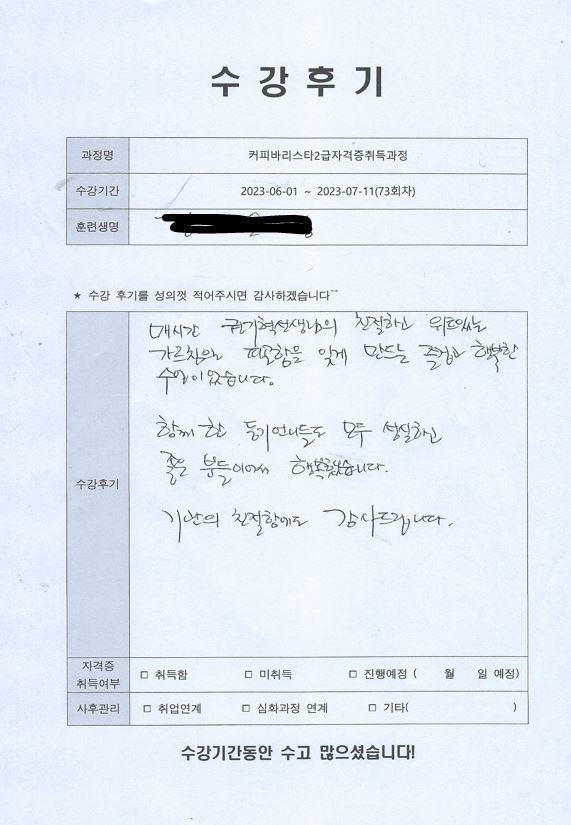 수 강 후 기
과정명 커피바리스타2급자격증취득과정
수강기간 2023-06-01 ~ 2023-07-11(73회차)
훈련생명
★ 수강 후기를 성의껏 적어주시면 감사하겠습니다^^
수강후기
매시간 권기혁선생님의 친절하고 위트있는
가르침은 피곤함을 잊게 만드는 즐겁고 행복한
수업이었습니다.
함께 한 동기언니들도 모두 성실하고
좋은 분들이어서 행복했습니다.
기관의 친절함에도 감사드립니다.
자격증
취득여부 □ 취득함 □ 미취득 □ 진행예정 ( 월 일 예정)
사후관리 □ 취업연계 □ 심화과정 연계 □ 기타( )
수강기간동안 수고 많으셨습니다!